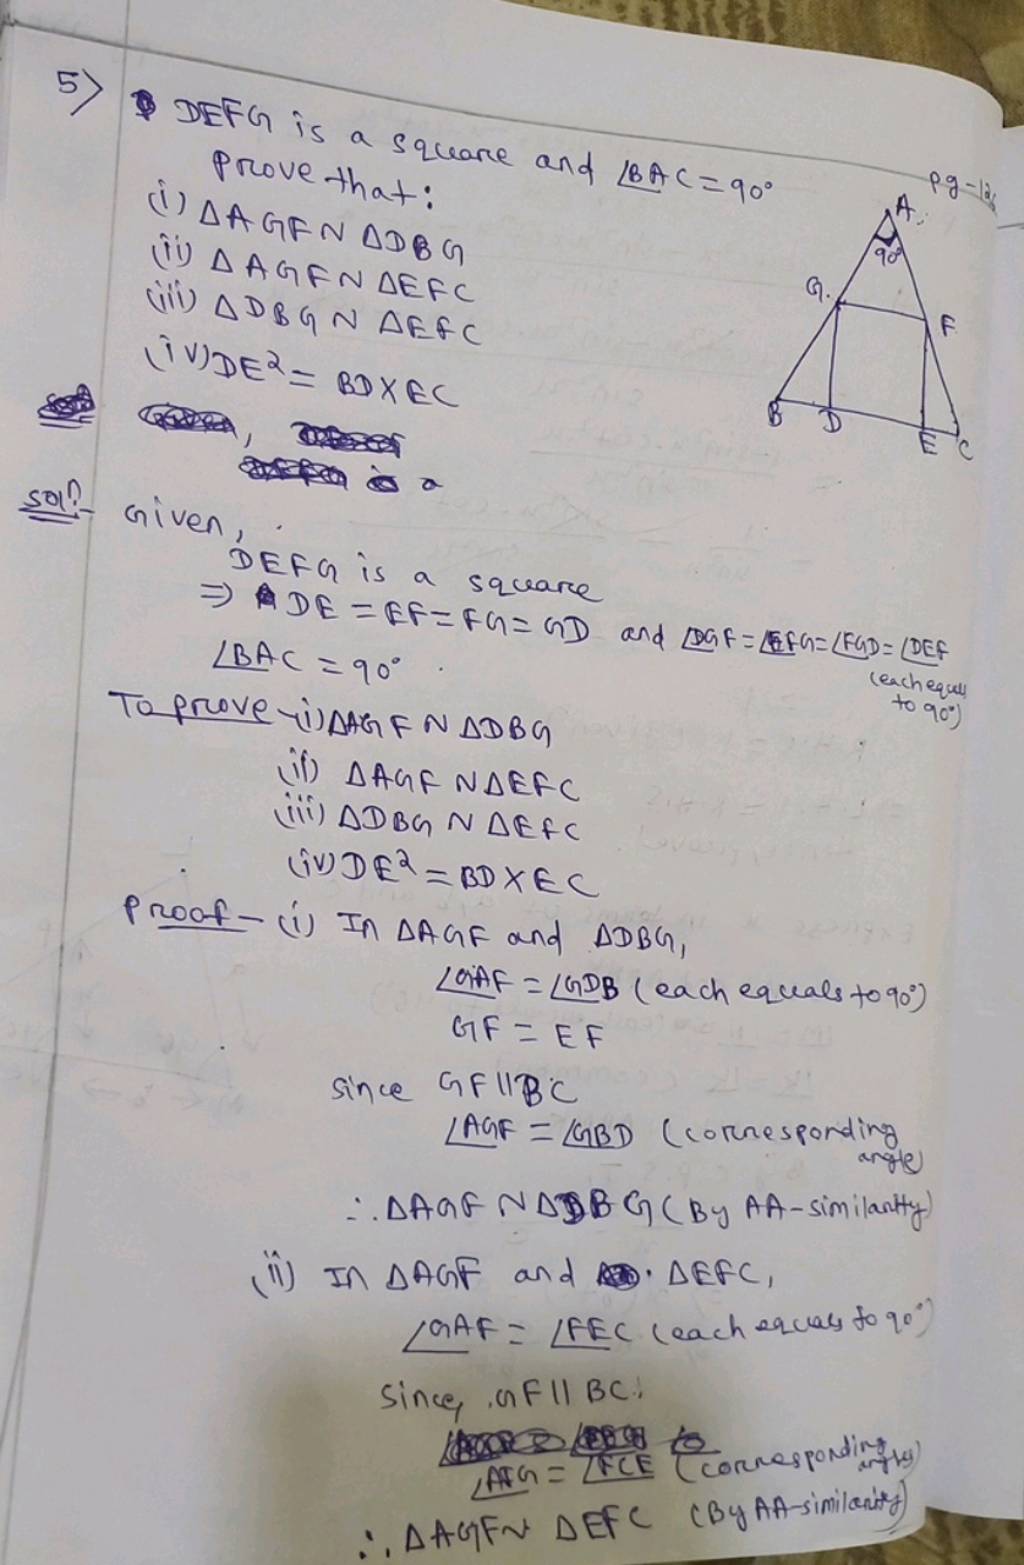 5) DEFG is a square and ∠BAC = 90°
prove that:
(i) ΔAGF ~ ΔDBG
(ii) ΔAGF ~ ΔEFC
(iii) ΔDBG ~ ΔEFC
(iv) DE² = BD×EC
pg-12
A
90°
G
F
B
D
E
C
a
Solⁿ- Given,
DEFG is a square
⇒ DE = EF = FG = GD and ∠DGF = ∠EFG = ∠FGD = ∠DEF
(each equals
to 90°)
∠BAC = 90°
To prove - (i) ΔAGF ~ ΔDBG
(ii) ΔAGF ~ ΔEFC
(iii) ΔDBG ~ ΔEFC
(iv) DE² = BD×EC
Proof - (i) In ΔAGF and ΔDBG,
∠GAF = ∠GDB (each equals to 90°)
GF = EF
since GF||BC
∠AGF = ∠GBD (corresponding
angle)
∴ ΔAGF ~ ΔDBG (By AA-similarity)
(ii) In ΔAGF and ΔEFC,
∠GAF = ∠FEC (each equals to 90°)
Since, GF || BC
∠AFG = ∠FCE (corresponding
angles)
∴ ΔAGF ~ ΔEFC (By AA-similarity)